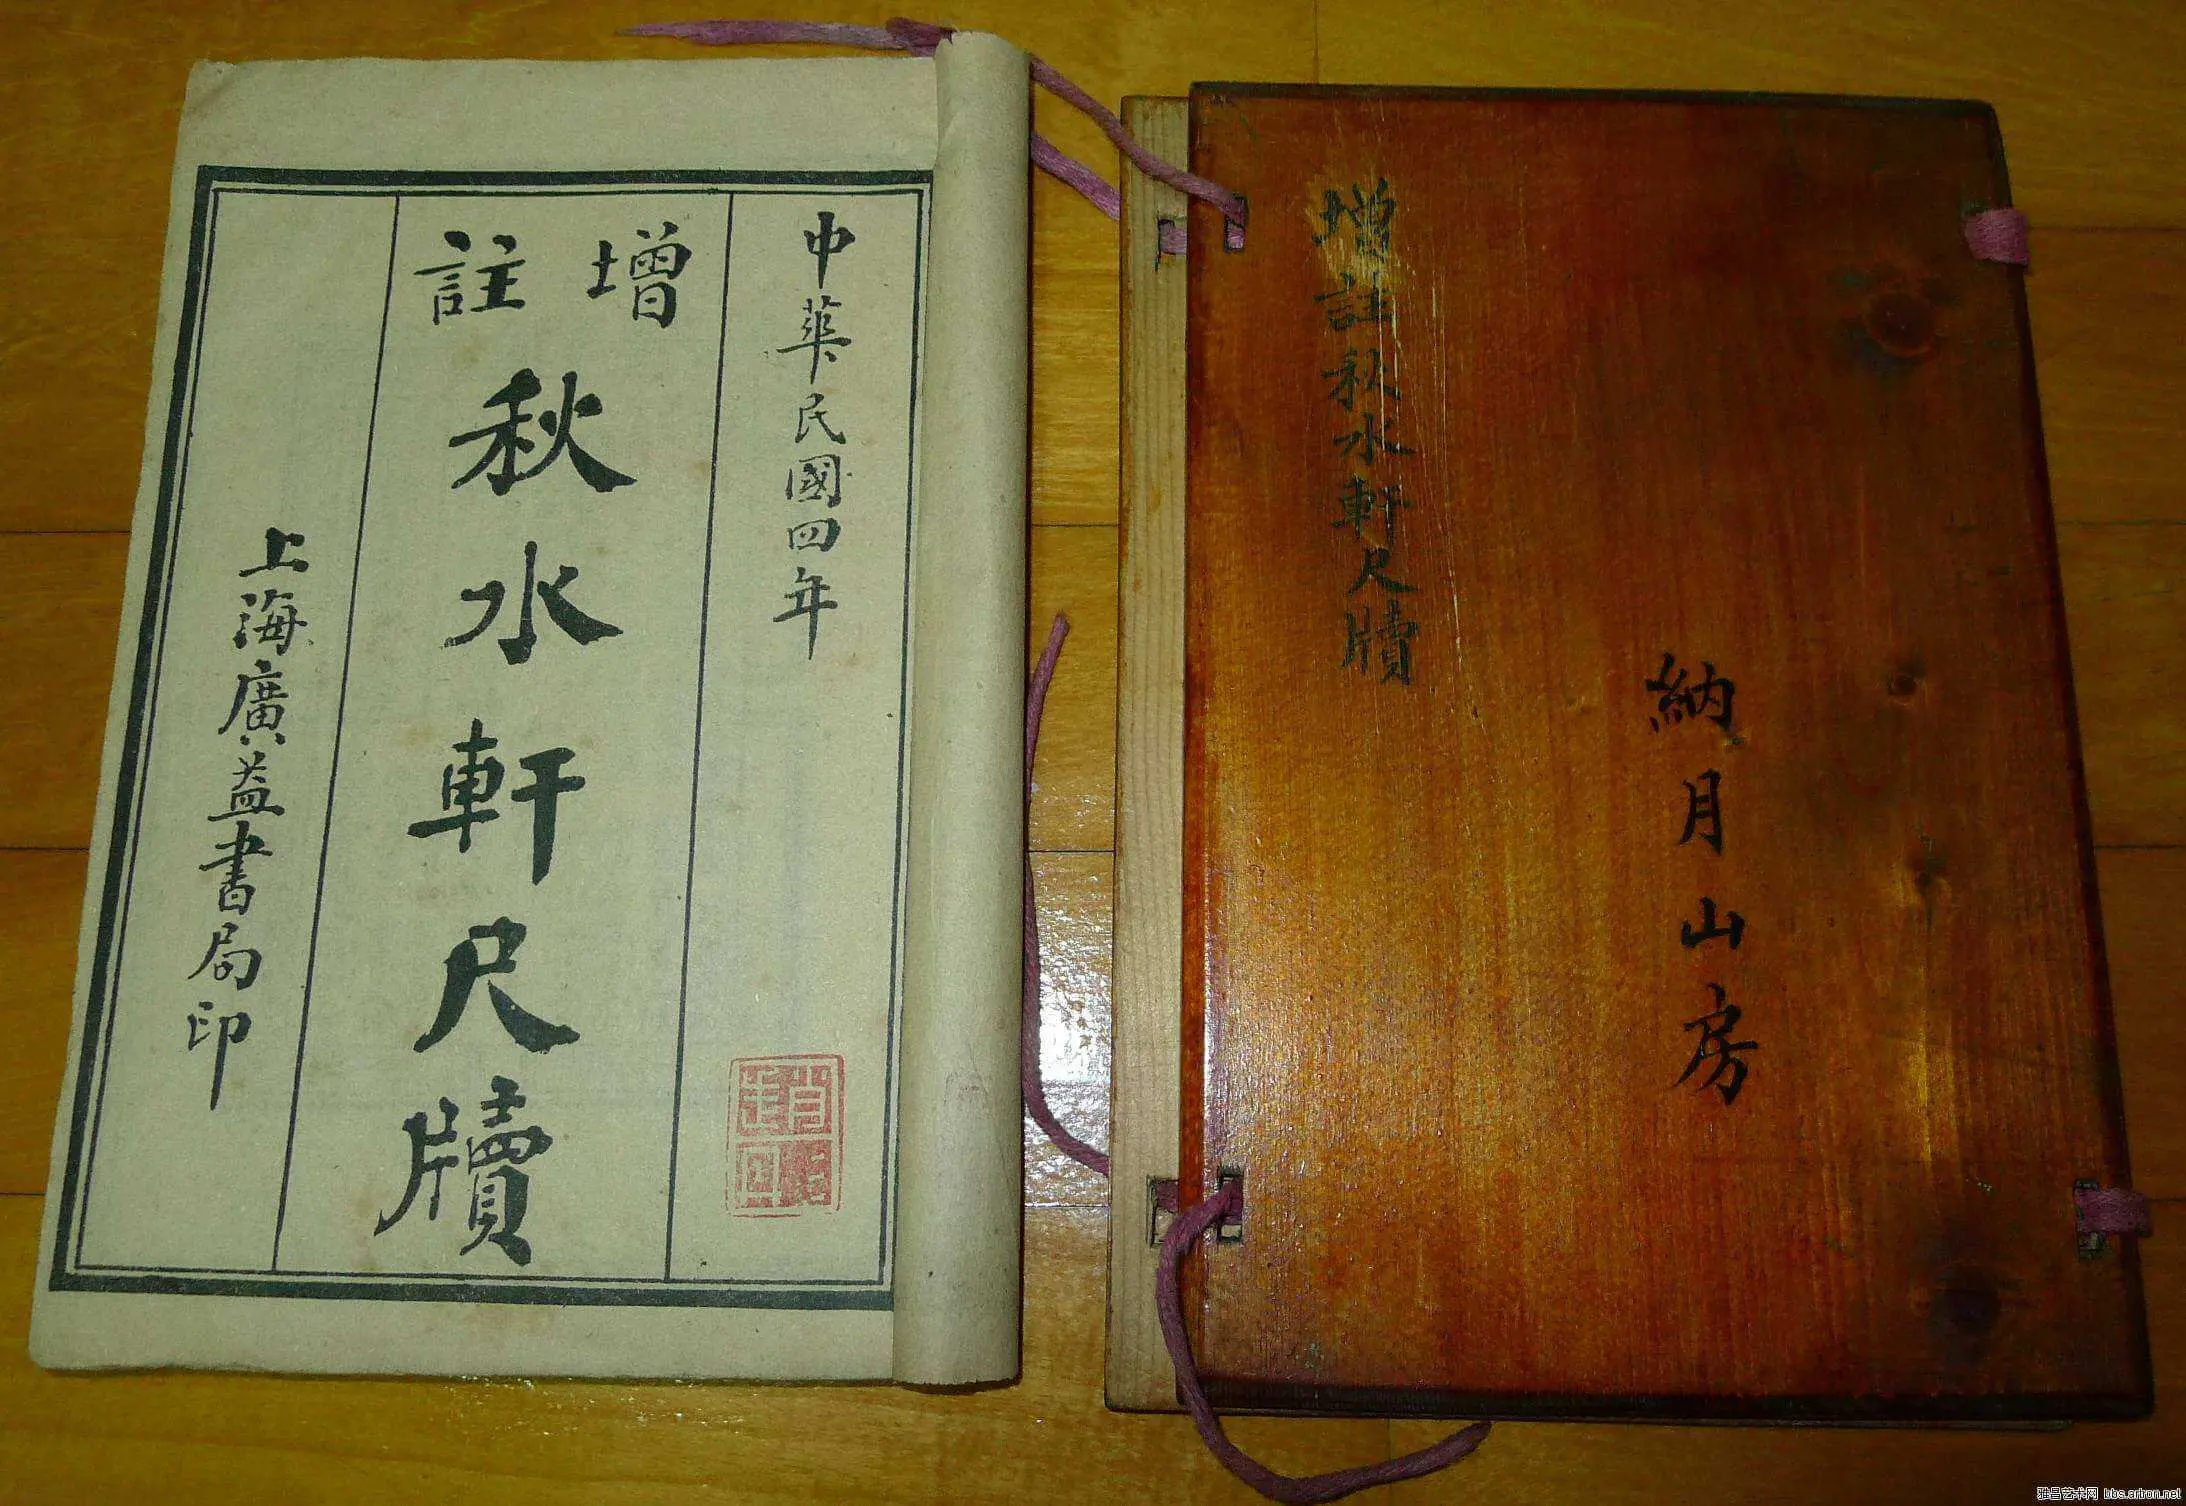 中華民國四年
增註
秋水軒尺牘
上海廣益書局印
增註秋水軒尺牘
納月山房
雅昌艺术网 bbs.artron.net